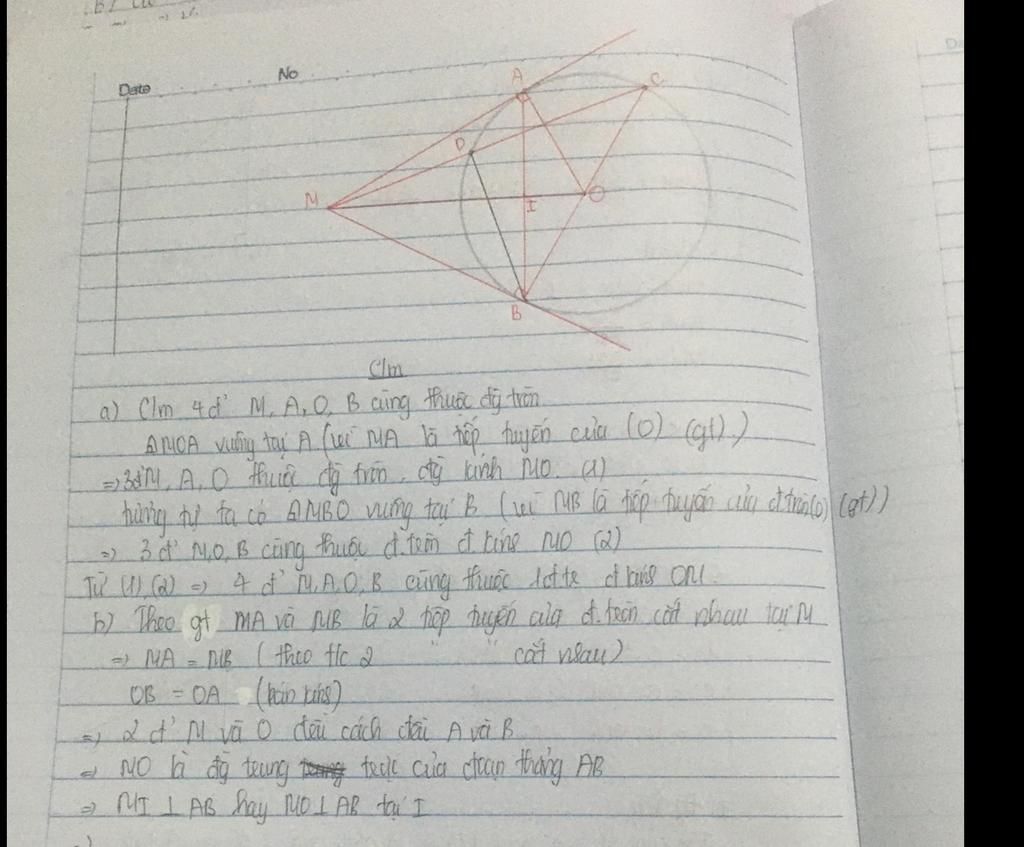 Date
No
A
C
D
M
I
O
B
C/m
a) C/m 4 đ' M, A, O, B cùng thuộc đg tròn
ΔMOA vuông tại A (vì MA là tiếp tuyến của (O) (gt).)
=> 3đ' M, A, O thuộc đg tròn, đg kính MO. (1)
tương tự ta có ΔMBO vuông tại B (vì MB là tiếp tuyến của đ.tròn(O) (gt))
=> 3 đ' M,O,B cùng thuộc đ.tròn đ kính MO (2)
Từ (1),(2) => 4 đ' M,A,O,B cùng thuộc 1đtr đ kính OM.
b) Theo gt MA và MB là 2 tiếp tuyến của đ.tròn cắt nhau tại M
=> MA = MB (theo t/c 2 " " cắt nhau)
OB = OA (bán kính)
=> 2 đ' M và O đều cách đều A và B
=> MO là đg trung trực của đoạn thẳng AB
=> MI ⊥ AB hay MO ⊥ AB tại I